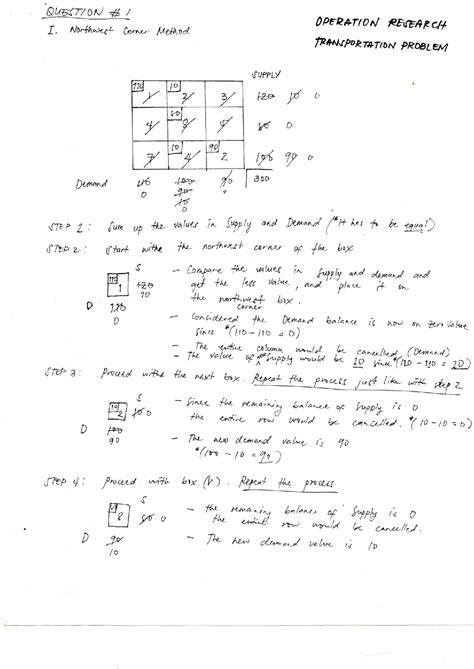 QUESTION # 1
OPERATION RESEARCH
I. Northwest Corner Method
TRANSPORTATION PROBLEM
SUPPLY
110 1 10 2 3 120 10 0
4 80 8 5 80 0
7 10 4 90 2 100 90 0
Demand 110 100 90 300
0 90
10
0
STEP 1 : Sum up the values in Supply and Demand (*It has to be equal)
STEP 2 : Start withe the northwest corner of the box
S
110 1 120
10
D 110
0
- Compare the values in Supply and demand and
get the less value, and place it on
the northwest corner box.
- Considered the Demand balance is now on zero value
since *(110-110 = 0)
- The entire column would be cancelled (Demand)
- The value of Supply would be 10 since *(120 - 110 = 10)
STEP 3 : Proceed withe the next box. Repeat the process just like with step 2
S
10 2 10 0
D 100
90
- Since the remaining balance of Supply is 0
the entire row would be cancelled. *(10-10=0)
- The new demand value is 90
*(100 - 10 = 90)
STEP 4 : Proceed with box (8). Repeat the process
S
8 80 0
D 90
10
- the remaining balance of Supply is 0
the entire row would be cancelled.
- The new demand value is 10